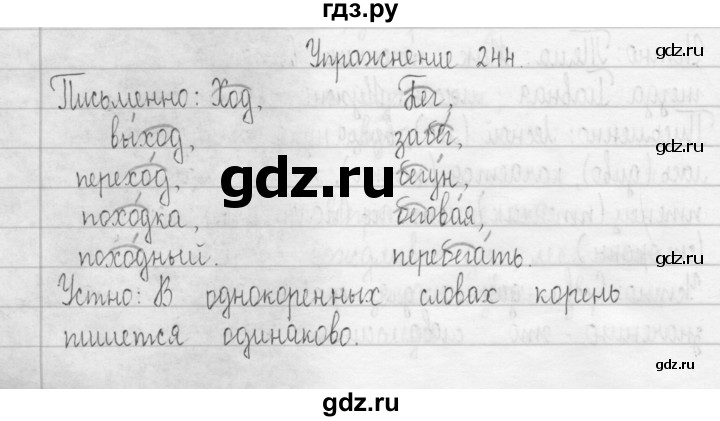 гдз.ру
Упражнение 244.
Письменно: Ход, Бег,
выход, забег,
переход, бегун,
gdz.ru
походка, беговая,
походный. перебегать.
Устно: В однокоренных словах корень
пишется одинаково.
gdz.ru
gdz.ru
gdz.ru
gdz.ru
gdz.ru
gdz.ru